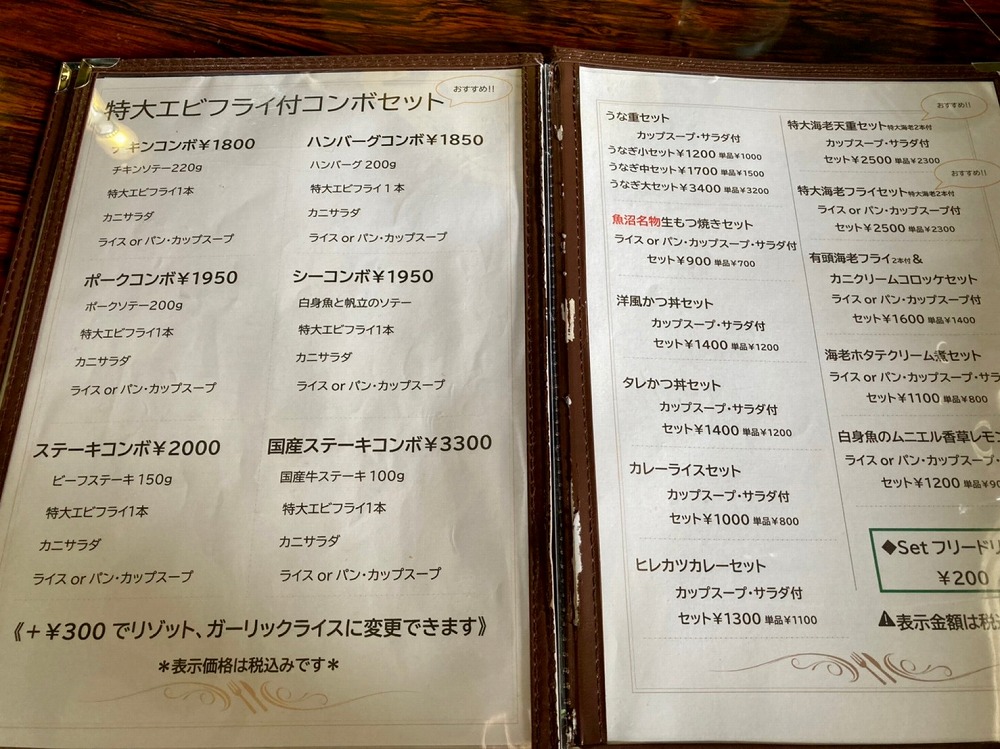 おすすめ!!
特大エビフライ付コンボセット
キンコンボ¥1800
チキンソテー220g
特大エビフライ1本
カニサラダ
ライス or パン・カップスープ
ハンバーグコンボ¥1850
ハンバーグ 200g
特大エビフライ1本
カニサラダ
ライス or パン・カップスープ
ポークコンボ¥1950
ポークソテー200g
特大エビフライ1本
カニサラダ
ライス or パン・カップスープ
シーコンボ¥1950
白身魚と帆立のソテー
特大エビフライ1本
カニサラダ
ライス or パン・カップスープ
ステーキコンボ¥2000
ビーフステーキ 150g
特大エビフライ1本
カニサラダ
ライス or パン・カップスープ
国産ステーキコンボ¥3300
国産牛ステーキ 100g
特大エビフライ1本
カニサラダ
ライス or パン・カップスープ
《+¥300 でリゾット、ガーリックライスに変更できます》
*表示価格は税込みです*
うな重セット
カップスープ・サラダ付
うなぎ小セット¥1200 単品¥1000
うなぎ中セット¥1700 単品¥1500
うなぎ大セット¥3400 単品¥3200
魚沼名物生もつ焼きセット
ライス or パン・カップスープ・サラダ付
セット¥900 単品¥700
洋風かつ丼セット
カップスープ・サラダ付
セット¥1400 単品¥1200
タレかつ丼セット
カップスープ・サラダ付
セット¥1400 単品¥1200
カレーライスセット
カップスープ・サラダ付
セット¥1000 単品¥800
ヒレカツカレーセット
カップスープ・サラダ付
セット¥1300 単品¥1100
おすすめ!!
特大海老天重セット特大海老2本付
カップスープ・サラダ付
セット¥2500 単品¥2300
おすすめ!!
特大海老フライセット特大海老2本付
ライス or パン・カップスープ付
セット¥2500 単品¥2300
有頭海老フライ2本付&
カニクリームコロッケセット
ライス or パン・カップスープ付
セット¥1600 単品¥1400
海老ホタテクリーム煮セット
ライス or パン・カップスープ・サラ
セット¥1100 単品¥800
白身魚のムニエル香草レモン
ライス or パン・カップスープ・
セット¥1200 単品¥90
◆Set フリードリ
¥200
⚠表示金額は税